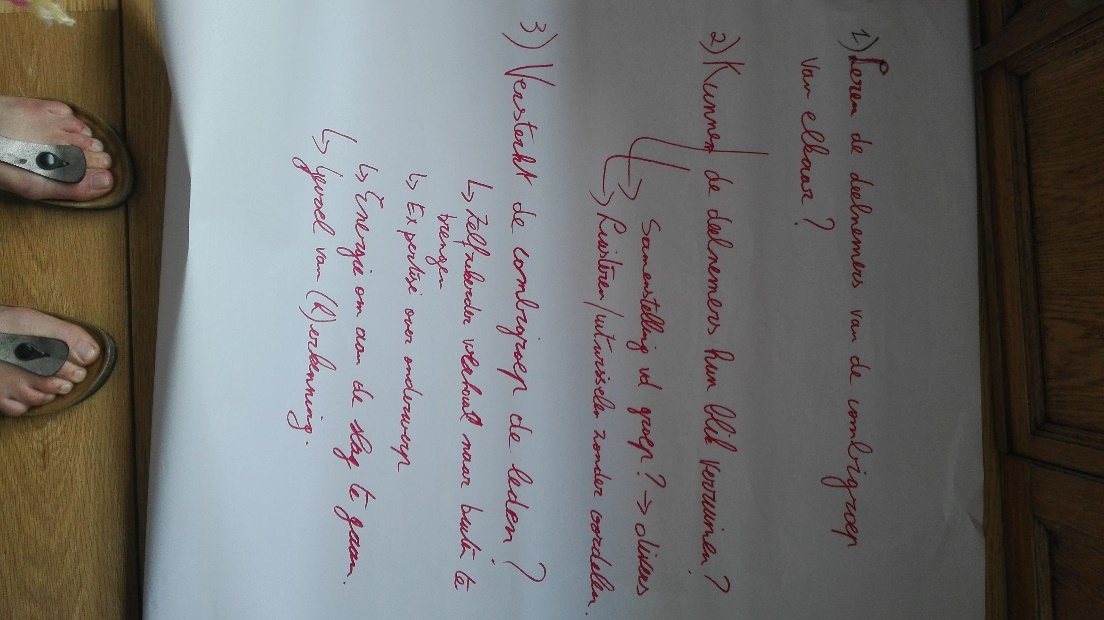 1) Leren de deelnemers van de combigroep
van elkaar?
2) Kunnen de deelnemers hun blik verruimen?
↳ Samenstelling vd groep? → divers
↳ Luisteren/uitwisselen zonder oordelen.
3) Versterkt de combigroep de leden?
↳ Zelfzekerder verhaal naar buiten te
brengen
↳ Expertise over onderwerp
↳ Energie om aan de slag te gaan.
↳ Gevoel van (h)erkenning.